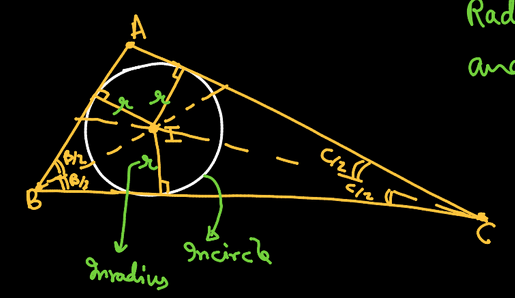 Rad
A
and
r r
I
r
B/2
B/2
C/2
C/2
B
C
Inradius
Incircle